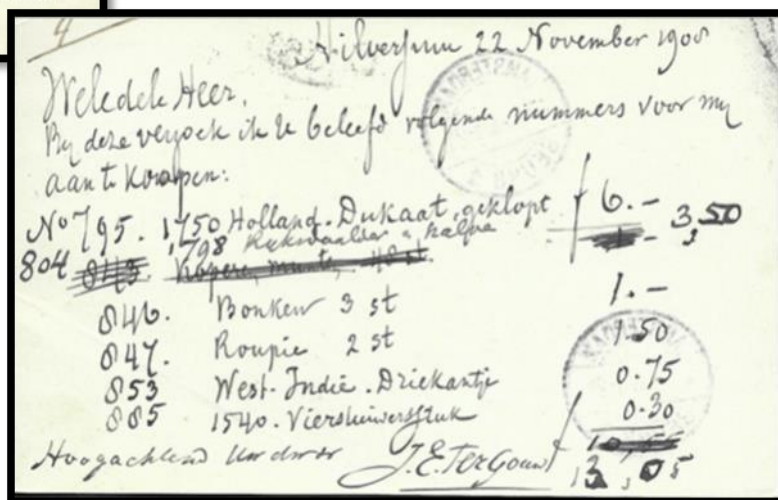 4
Hilversum 22 November 1908
Weledele Heer,
By deze verzoek ik U beleefd volgende nummers voor my
aan te koopen:
No 795. 1750 Holland. Dukaat geklopt f 6.-
804 1798 Ryksdaalder & halve 3,50
846. Bonken 3 st 1.-
847. Roupie 2 st 1.50
853 West. Indië. Driekantje 0.75
885 1540. Vierstuiverstuk 0.30
Hoogachtend Uw dienaar J.E. Ter Gouw f 13,05